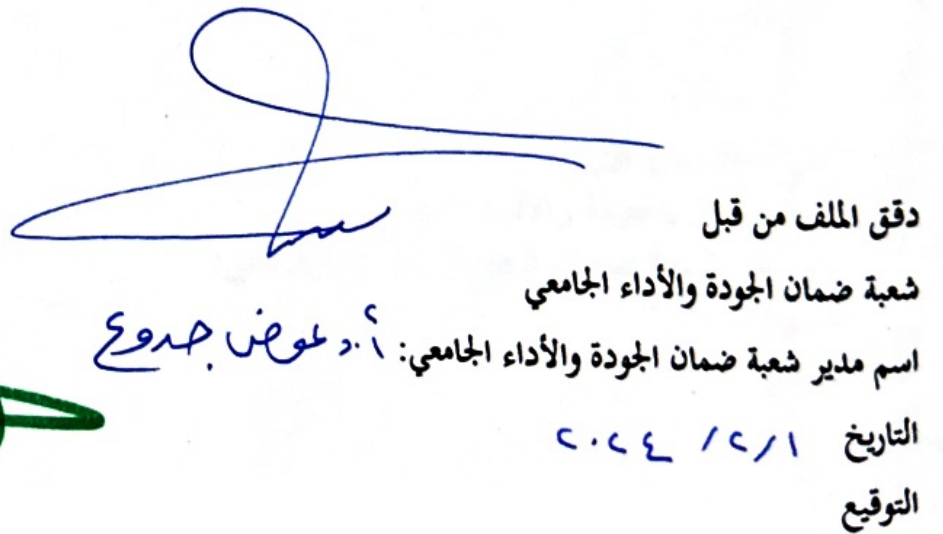 دقق الملف من قبل
شعبة ضمان الجودة والأداء الجامعي
اسم مدير شعبة ضمان الجودة والأداء الجامعي: أ.د عوض جدوع
التاريخ ١ /٢/ ٢٠٢٤
التوقيع